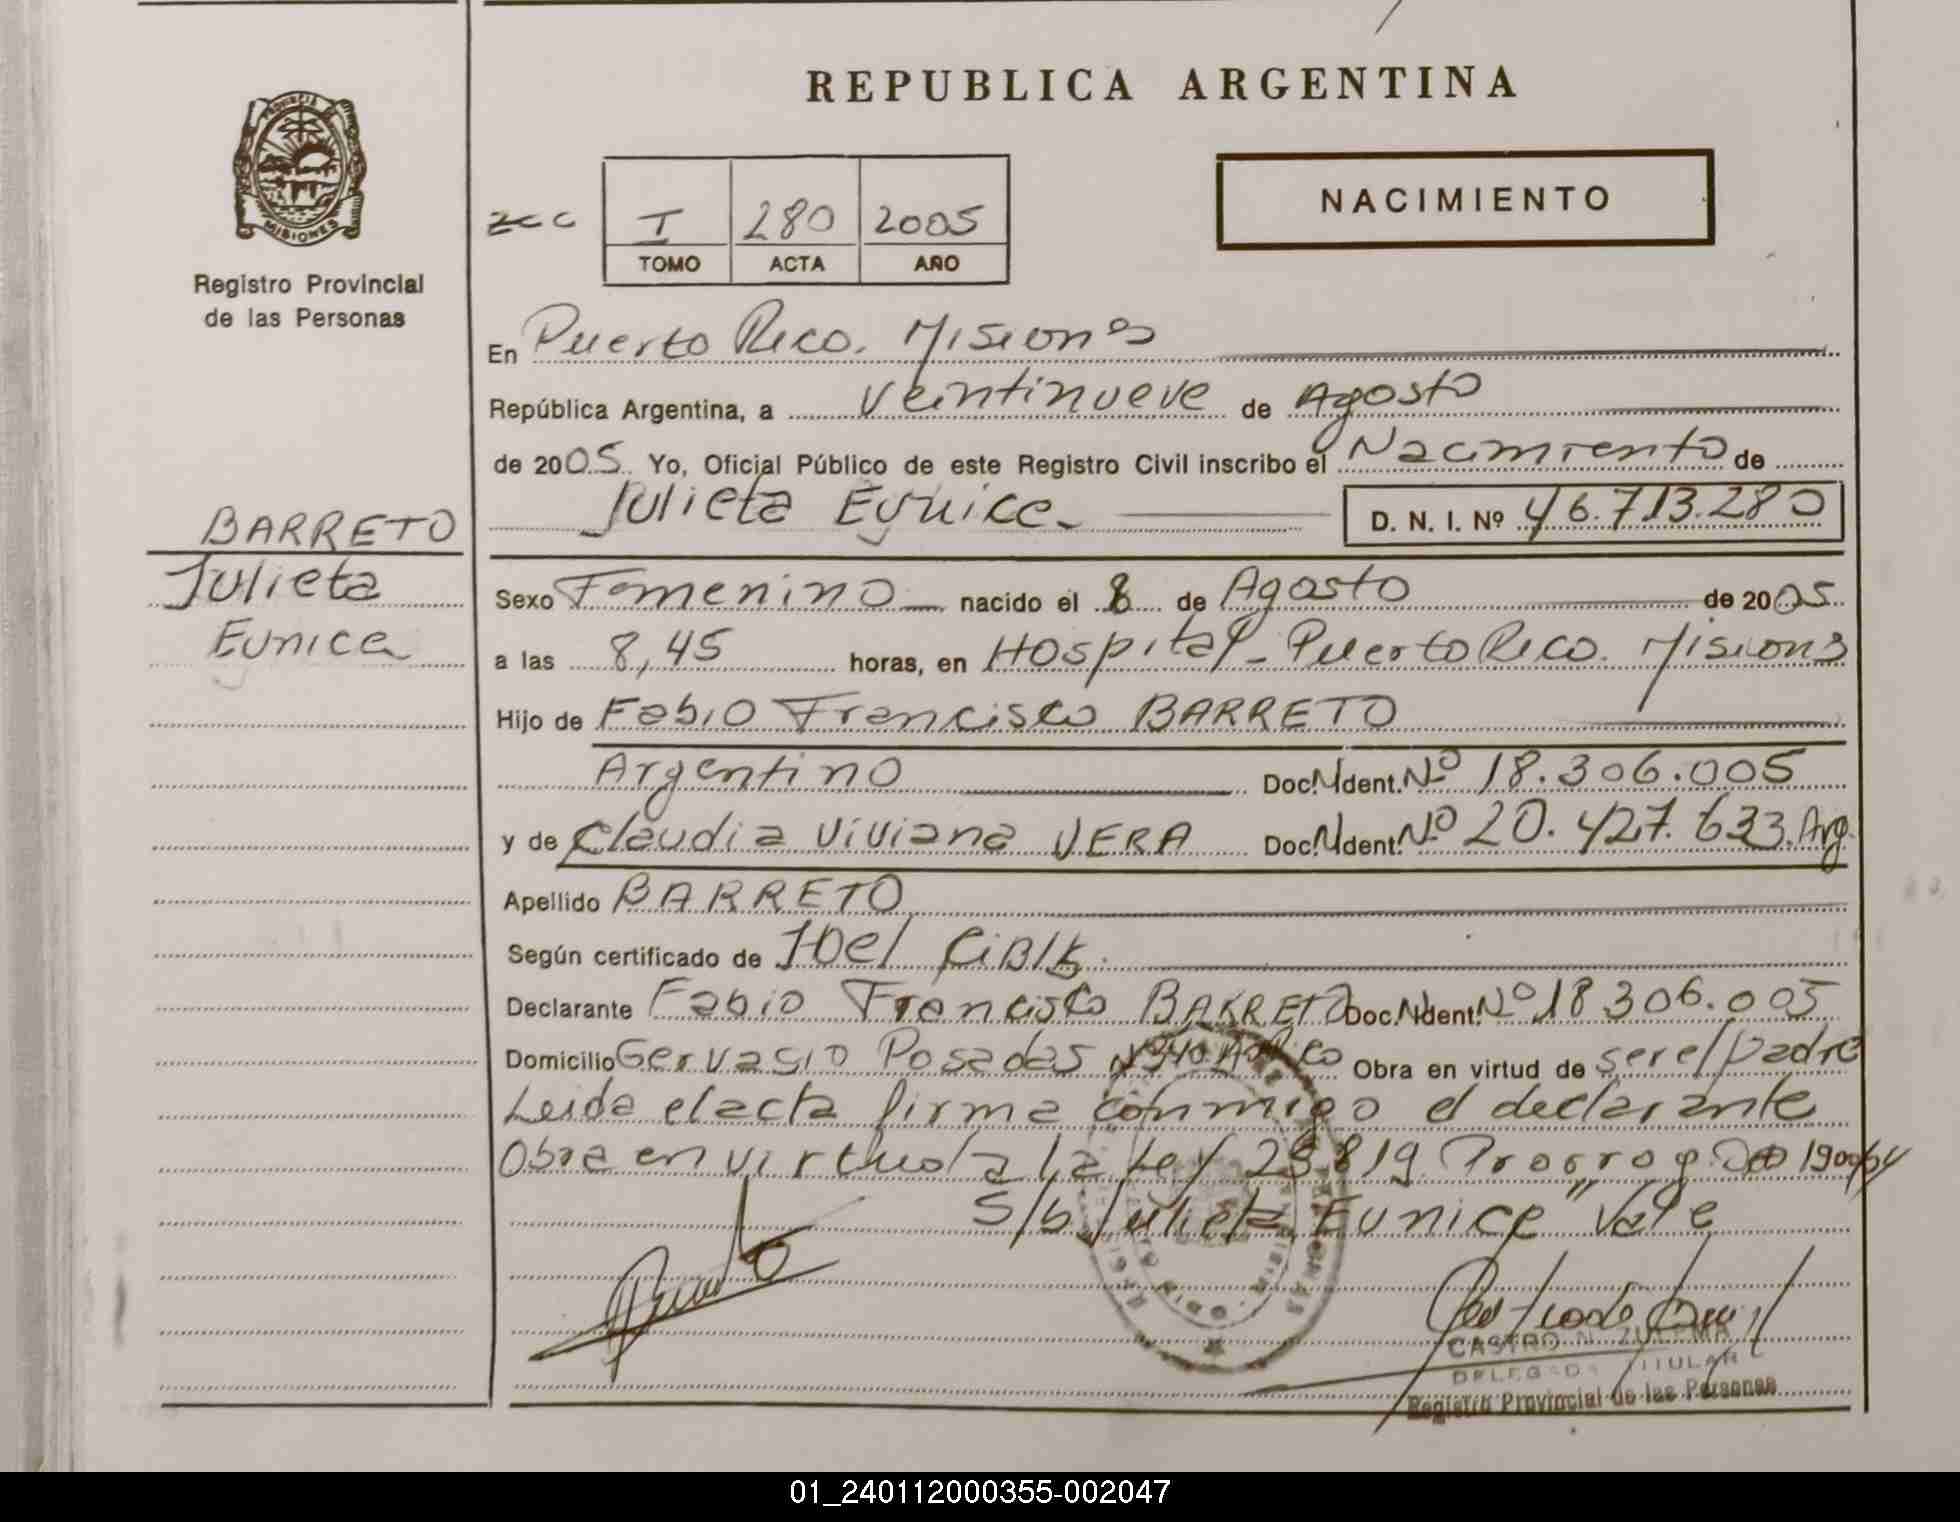 REPUBLICA ARGENTINA
PROVINCIA
MISIONES
Registro Provincial
de las Personas
NACIMIENTO
I 280 2005
TOMO ACTA AÑO
En Puerto Rico. Misiones
República Argentina, a veintinueve de Agosto
de 2005. Yo, Oficial Público de este Registro Civil inscribo el Nacimiento de
Julieta Eunice D. N. I. Nº 46.713.280
BARRETO
Julieta
Eunice
Sexo Femenino nacido el 8 de Agosto de 2005.
a las 8,45 horas, en Hospital - Puerto Rico. Misiones
Hijo de Fabio Francisco BARRETO
Argentino Doc. N Ident. Nº 18.306.005
y de Claudia Viviana VERA Doc. N Ident. Nº 20.427.633. Arg.
Apellido BARRETO
Según certificado de Joel
Declarante Fabio Francisco BARRETO Doc. N Ident. Nº 18 306.005
Domicilio Gervasio Posadas Nº 340 Obra en virtud de ser el padre
Leida el acta firma conmigo el declarante
Obra en virtud a la Ley 25819 Prorrog. Dto 1900/04
S/b Julieta "Eunice" Vale
CASTRO N. ZULEMA
DELEGADA TITULAR
Registro Provincial de las Personas
01_240112000355-002047